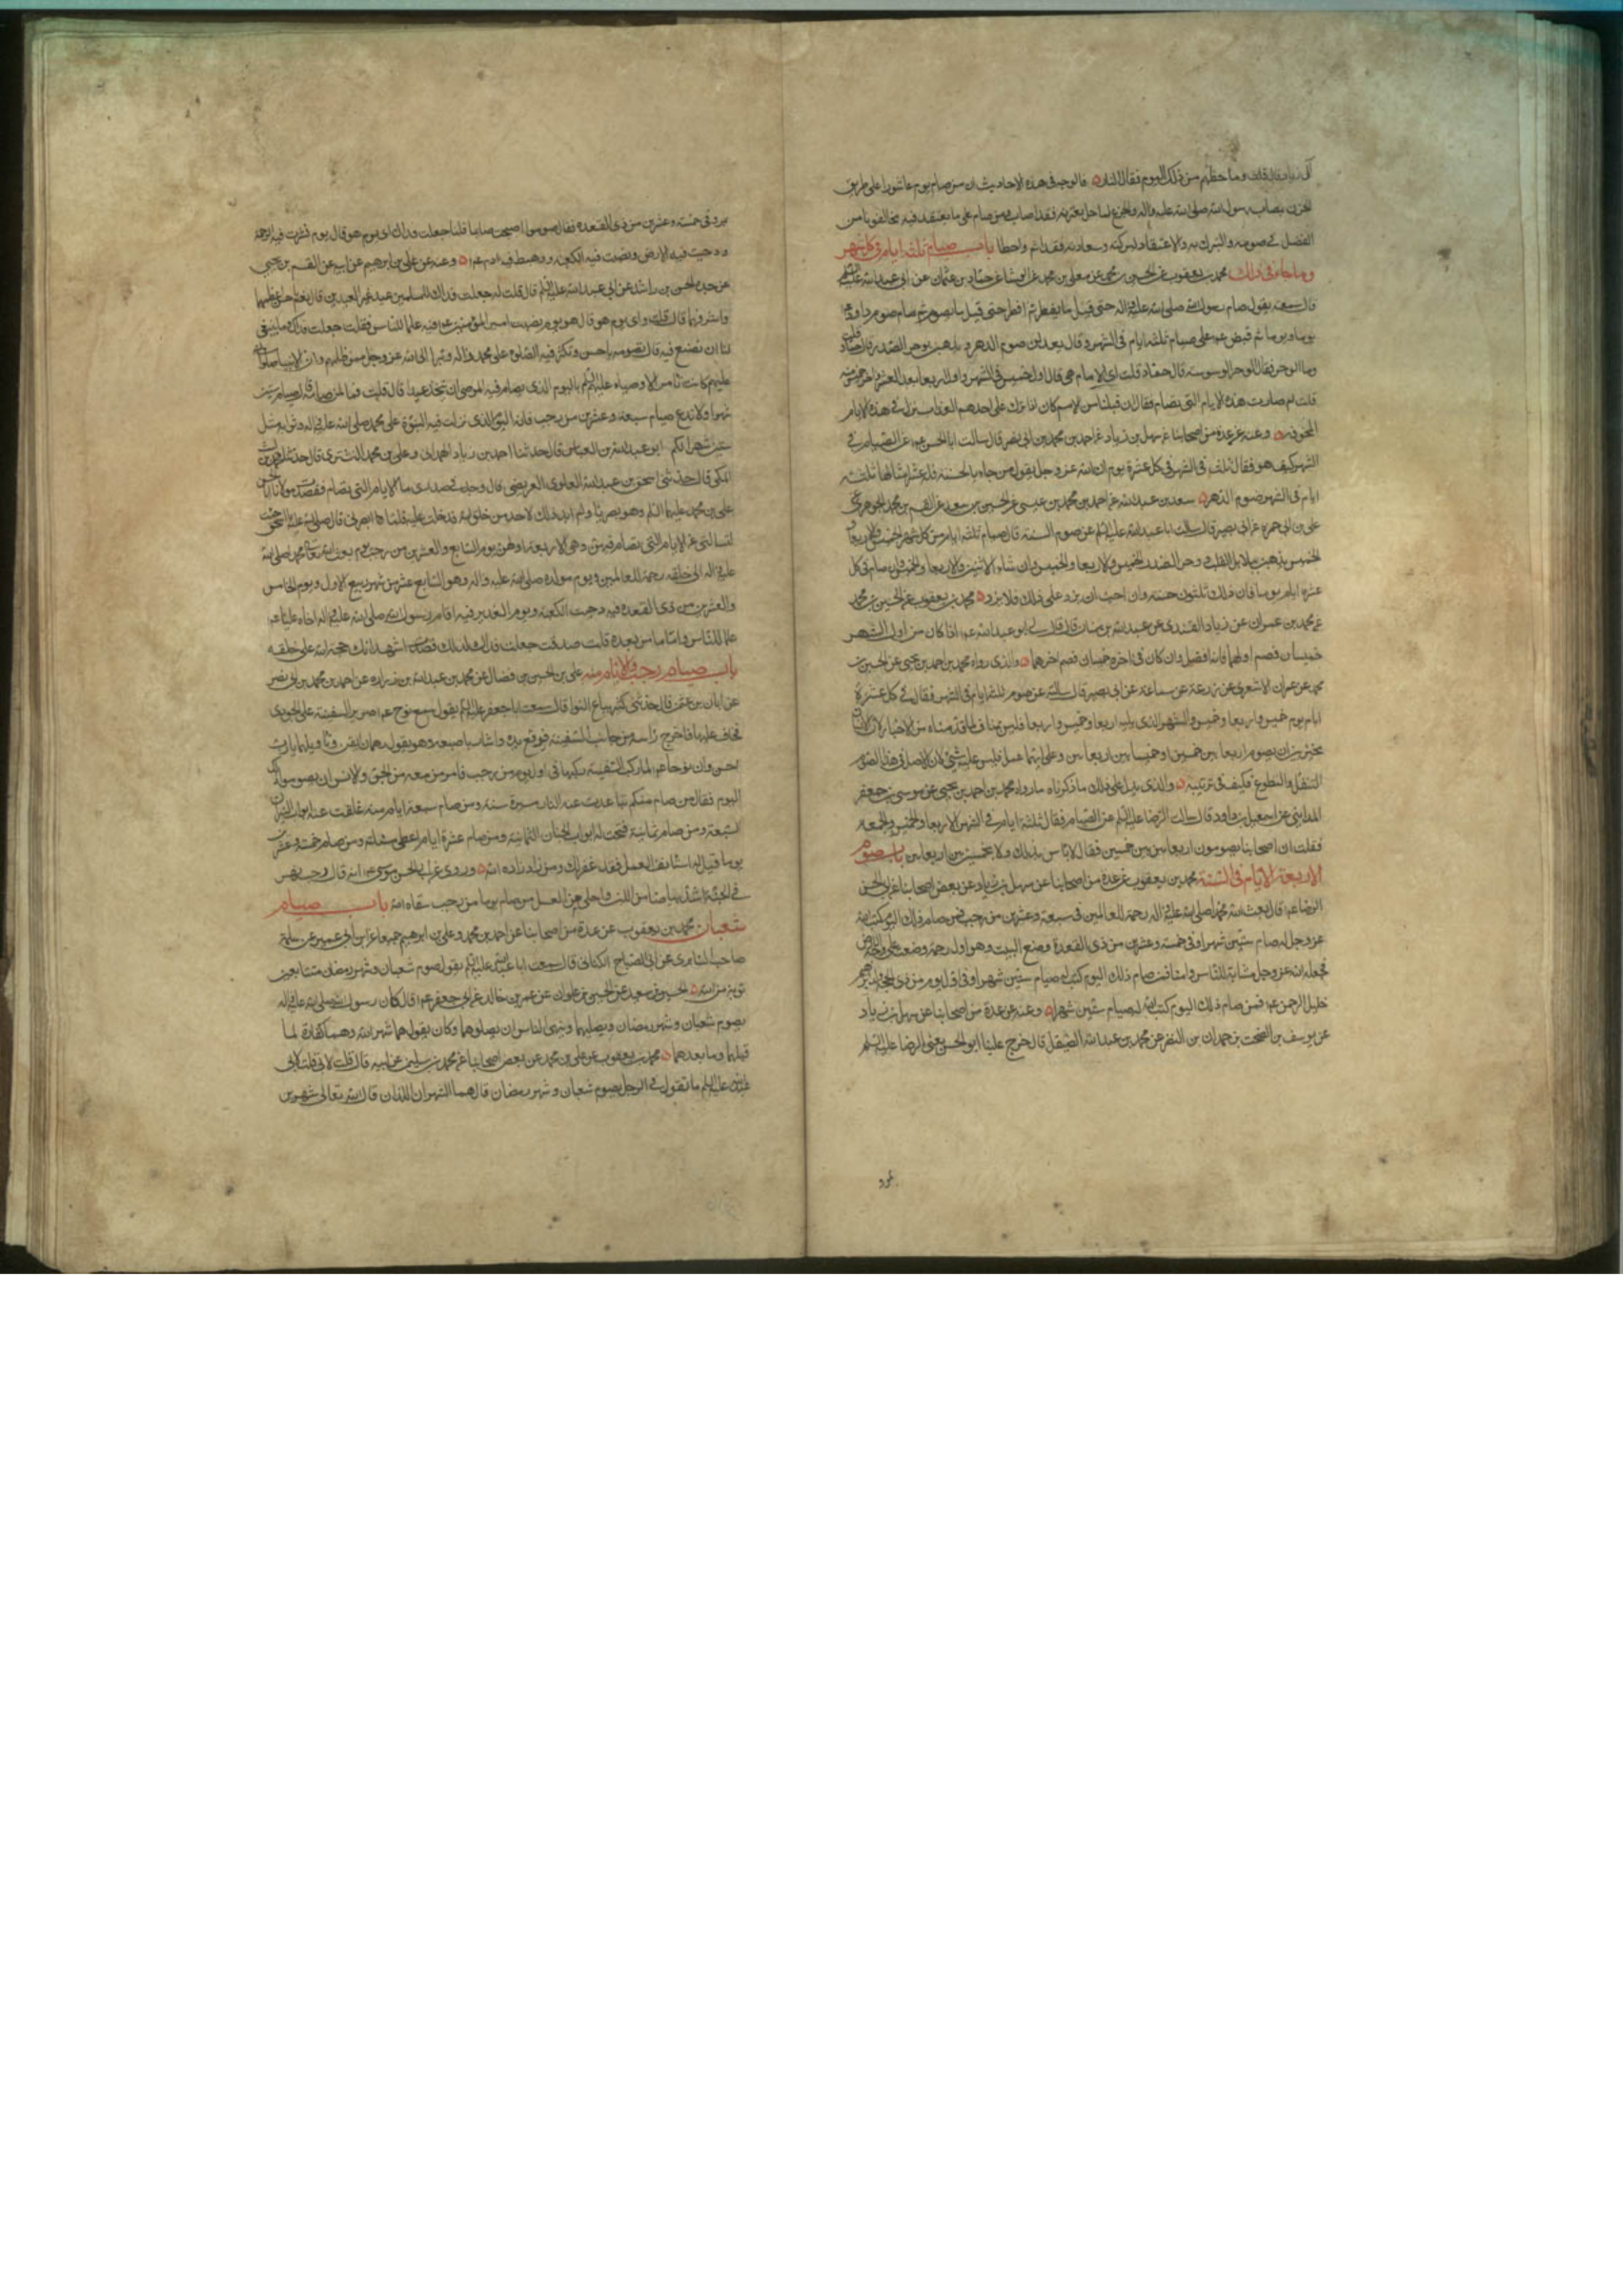 آل زياد قال قلت وما حظهم من ذلك اليوم فقال النار فالوجه في هذه الاحاديث ان من صام يوم عاشورا على طريق
الحزن بمصاب رسول الله صلى الله عليه واله والجزع لما حل بعترته فقد اصاب ومن صام على ما يعتقد فيه مخالفونا من
الفضل في صومه والتبرك به والاعتقاد لبركته وسعادته فقد اثم واخطا باب صيام ثلثه ايام في كل شهر
وما جاء في ذلك محمد بن يعقوب عن الحسين بن محمد عن معلى بن محمد عن الوشا عن حماد بن عثمان عن ابي عبد الله عليه السلم
قال سمعته يقول صام رسول الله صلى الله عليه واله حتى قيل ما يفطر ثم افطر حتى قيل ما يصوم ثم صام صوم داود ع
يوما ويوما ثم قبض ع على صيام ثلثه ايام في الشهر وقال يعدلن صوم الدهر و يذهبن بوحر الصدر قال حماد فقلت
وما الوحر فقال الوحر الوسوسة قال حماد قلت اي الايام هي قال اول خميس في الشهر واول اربعا بعد العشر واخر خميس منه
قلت لم صارت هذه الايام التي تصام فقال ان من قبلنا من الامم كان اذا نزل على احدهم العذاب نزل في هذه الايام
المخوفه وعنه عن عدة من اصحابنا عن سهل بن زياد عن احمد بن محمد بن ابي نصر قال سالت ابا الحسن ع عن الصيام في
الشهر كيف هو فقال ثلث في الشهر في كل عشرة يوم ان الله عز وجل يقول من جاء بالحسنة فله عشر امثالها ثلثه
ايام في الشهر صوم الدهر سعد بن عبد الله عن احمد بن محمد بن عيسى عن الحسين بن سعيد عن القسم بن محمد الجوهري عن
علي بن ابي حمزه عن ابي بصير قال سالت ابا عبد الله عليه السلم عن صوم السنة قال صيام ثلثه ايام من كل شهر الخميس والاربعا
والخميس يذهبن ببلابل القلب و وحر الصدر الخميس والاربعا والخميس وان شاء الاثنين والاربعا والخميس وان صام في كل
عشرة ايام يوما فان ذلك ثلثون حسنه وان احب ان يزيد على ذلك فلايزد محمد بن يعقوب عن الحسين بن محمد
عن محمد بن عمران عن زياد القندي عن عبد الله بن سنان قال قال لي ابو عبد الله ع اذا كان من اول الشهر
خميسان فصم اولهما فانه افضل وان كان في اخره خميسان فصم اخرهما والذي رواه محمد بن احمد بن يحيى عن الحسين بن
محمد عن عمران الاشعري عن زرعة عن سماعة عن ابي بصير قال سالته عن صوم ثلثه ايام في الشهر فقال في كل عشرة
ايام يوم خميس واربعا وخميس والشهر الذي يليه اربعا وخميس واربعا فليس بمناف لما قدمناه من الاخبار لان الانسان
مخير بين ان يصوم اربعا بين خميسين او خميسا بين اربعاين وعلى ايهما عمل فليس عليه شئ لان الاصل في هذا الصوم
التنفل والتطوع فكيف في ترتيبه والذي يدل على ذلك ما ذكرناه ما رواه محمد بن احمد بن يحيى عن موسى بن جعفر
المدايني عن اسمعيل بن داود قال سالت الرضا عليه السلم عن الصيام فقال ثلثه ايام في الشهر الاربعا والخميس والجمعه
فقلت ان اصحابنا يصومون اربعا بين خميسين فقال لا باس بذلك ولا بخميس بين اربعاين باب صوم
الاربعة الايام في السنة محمد بن يعقوب عن عدة من اصحابنا عن سهل بن زياد عن بعض اصحابنا عن ابي الحسن
الرضا ع قال بعث الله محمدا صلى الله عليه واله رحمة للعالمين في سبعة وعشرين من رجب فمن صام ذلك اليوم كتب الله
عز وجل له صيام ستين شهرا وفي خمسة وعشرين من ذي القعدة وضع البيت وهو اول رحمة وضعت على وجه الارض
فجعله الله عز وجل مثابة للناس وامنا فمن صام ذلك اليوم كتب له صيام ستين شهرا وفي اول يوم من ذي الحجة ولد ابرهيم
خليل الرحمن ع فمن صام ذلك اليوم كتب الله له صيام ستين شهرا وعنه عن عدة من اصحابنا عن سهل بن زياد
عن يوسف بن السخت بن حمدان بن النضر عن محمد بن عبد الله الصيقل قال خرج علينا ابو الحسن يعني الرضا عليه السلم
بمرو
بمرو في خمسة وعشرين من ذي القعده فقال صوموا اصبحت صايما قلنا جعلت فداك اي يوم هو قال يوم نشرت فيه الرحمة
ودحيت فيه الارض ونصبت فيه الكعبة وهبط فيه ادم ع وعنه عن علي بن ابرهيم عن ابيه عن القسم بن يحيى
عن جده الحسن بن راشد عن ابي عبد الله عليه السلم قال قلت له جعلت فداك للمسلمين عيد غير العيدين قال نعم يا حسن اعظمهما
واشرفهما قال قلت واي يوم هو قال هو يوم نصب امير المؤمنين ع فيه علما للناس فقلت جعلت فداك وما ينبغي
لنا ان نصنع فيه قال تصومه يا حسن وتكثر فيه الصلوة على محمد واله وتبرا الى الله عز وجل ممن ظلمهم وان الانبيا صلوات الله
عليهم كانت تامر الاوصياء عليهم السلم باليوم الذي يقام فيه الوصي ان يتخذ عيدا قال قلت فما لمن صامه قال صيام ستين
شهرا ولا تدع صيام سبعة وعشرين من رجب فانه اليوم الذي نزلت فيه النبوة على محمد صلى الله عليه واله وثوابه مثل
ستين شهرا لكم ابو عبد الله بن العياش قال حدثنا احمد بن زياد الهمداني وعلي بن محمد التستري قال حدثنا محمد بن الليث
المكي قال حدثني اسحق بن عبد الله العلوي العريضي قال وحك في صدري ما الايام التي تصام فقصدت مولانا ابا الحسن
علي بن محمد عليهما السلم وهو بصريا ولم ابد ذلك لاحد من خلق الله فدخلت عليه فلما بصر بي قال صلى الله عليه يا اسحق جئت
تسالني عن الايام التي يصام فيهن وهي الاربعة اولهن يوم السابع والعشرين من رجب يوم بعث الله تعالى محمدا صلى الله
عليه واله الى خلقه رحمة للعالمين ويوم مولده صلى الله عليه واله وهو السابع عشر من شهر ربيع الاول ويوم الخامس
والعشرين من ذي القعده فيه دحيت الكعبة ويوم الغدير فيه اقام رسول الله صلى الله عليه واله اخاه عليا ع
علما للناس واماما من بعده قلت صدقت جعلت فداك لذلك قصدت اشهد انك حجة الله على خلقه
باب صيام رجب والايام منه علي بن الحسن بن فضال عن محمد بن عبد الله بن زراره عن احمد بن محمد بن ابي نصر
عن ابان بن عثمن قال حدثني كثير بياع النوا قال سمعت ابا جعفر عليه السلم يقول سمع نوح ع صرير السفينة على الجودي
فخاف عليها فاخرج راسه من جانب السفينه فرفع يده واشار باصبعه وهو يقول رهمان اتقن وتاويلها يا رب
احسن وان نوحا ع لما ركب السفينة ركبها في اول يوم من رجب فامر من معه من الجن والانس ان يصوموا ذلك
اليوم فقال من صام منكم تباعدت عنه النار مسيرة سنة ومن صام سبعة ايام منه غلقت عنه ابواب النيران
السبعة ومن صام ثمانية فتحت له ابواب الجنان الثمانية ومن صام عشرة ايام اعطي مسئلته ومن صام خمسة وعشرين
يوما قيل له استانف العمل فقد غفر لك ومن زاد زاده الله وروي عن ابي الحسن موسى ع انه قال رجب نهر
في الجنة اشد بياضا من اللبن واحلى من العسل من صام يوما من رجب سقاه الله باب صيام
شعبان محمد بن يعقوب عن عدة من اصحابنا عن احمد بن محمد وعلي بن ابرهيم جميعا عن ابن ابي عمير عن سلمة
صاحب السابري عن ابي الصباح الكناني قال سمعت ابا عبد الله عليه السلم يقول صوم شعبان وشهر رمضان متتابعين
توبة من الله الحسين بن سعيد عن الحسين بن علوان عن عمرو بن خالد عن ابي جعفر ع قال كان رسول الله صلى الله عليه واله
يصوم شعبان وشهر رمضان ويصلهما وينهى الناس ان يصلوهما وكان يقول هما شهر الله وهما كفارة لما
قبلهما وما بعدهما محمد بن يعقوب عن علي بن محمد عن بعض اصحابنا عن محمد بن سليمن عن ابيه قال قلت لابي
عبد الله عليه السلم ما تقول في الرجل يصوم شعبان وشهر رمضان قال هما الشهران اللذان قال الله تعالى شهرين